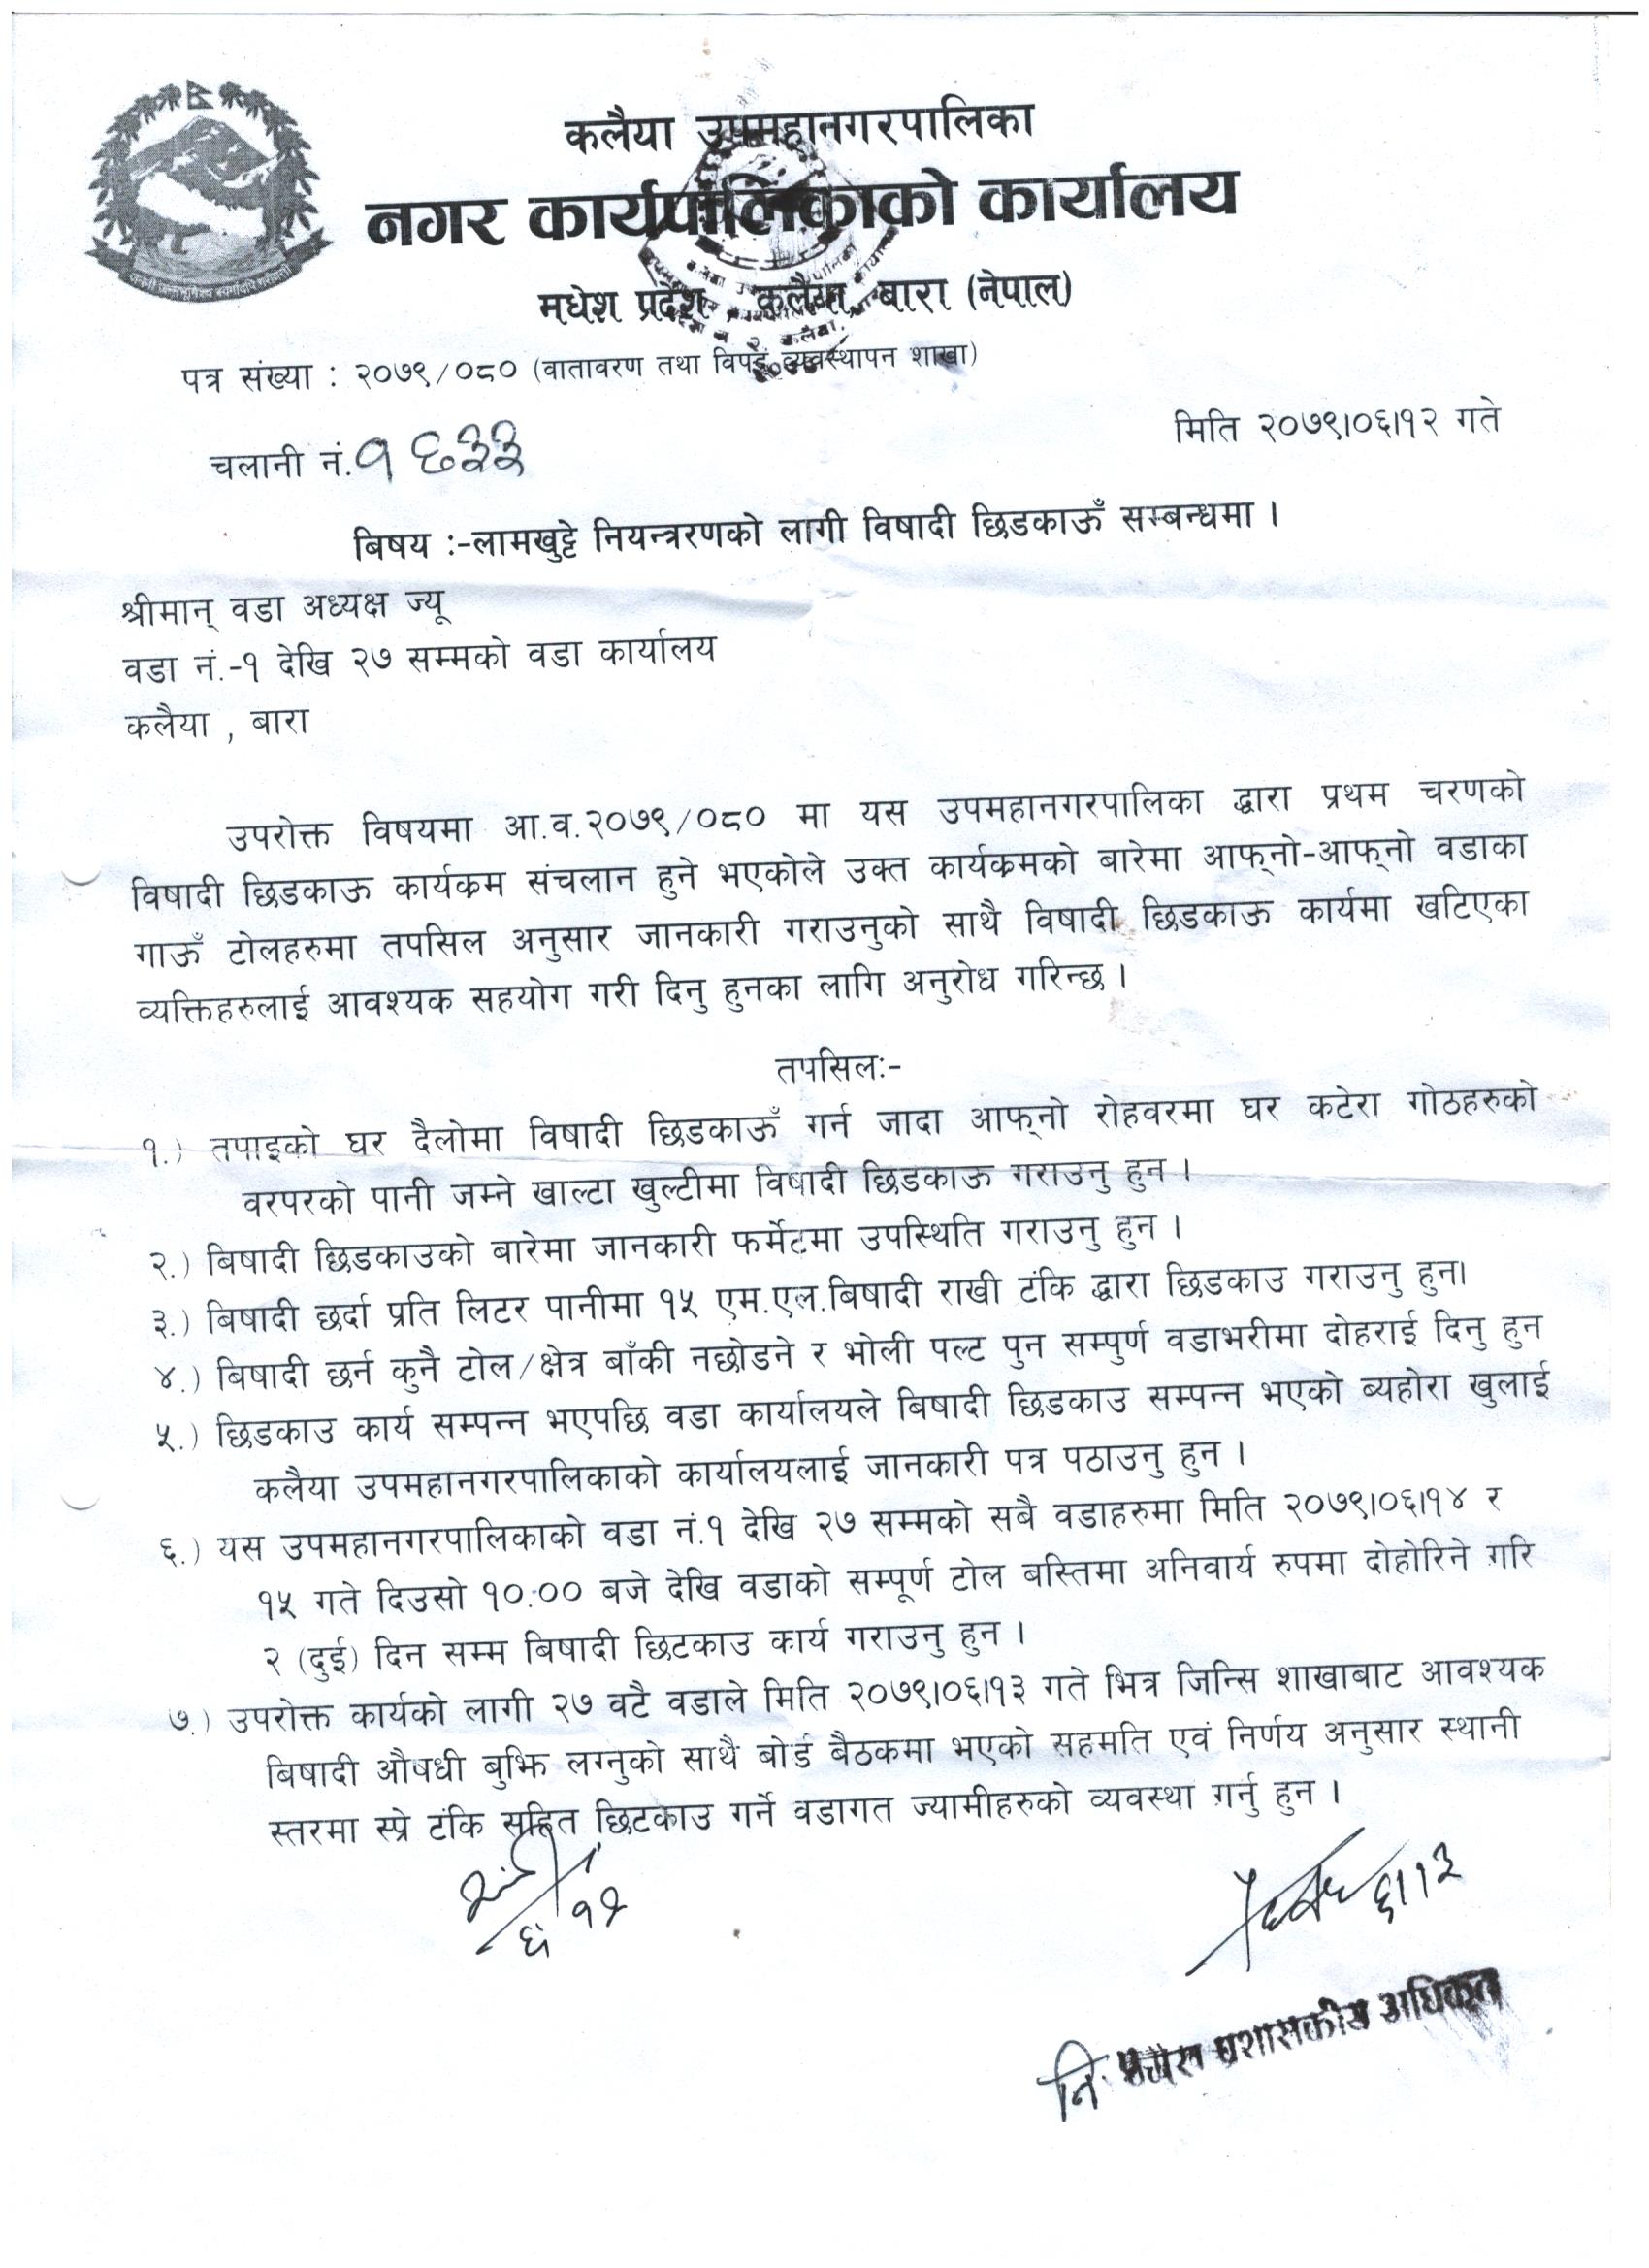 कलैया उपमहानगरपालिका
नगर कार्यपालिकाको कार्यालय
मधेश प्रदेश, कलैया, बारा (नेपाल)
पत्र संख्या : २०७९/०८० (वातावरण तथा विपद् व्यवस्थापन शाखा)
मिति २०७९।०६।१२ गते
चलानी नं. १६३३
बिषय :-लामखुट्टे नियन्त्ररणको लागी विषादी छिडकाऊँ सम्बन्धमा ।
श्रीमान् वडा अध्यक्ष ज्यू
वडा नं.-१ देखि २७ सम्मको वडा कार्यालय
कलैया , बारा
उपरोक्त विषयमा आ.व.२०७९/०८० मा यस उपमहानगरपालिका द्धारा प्रथम चरणको
विषादी छिडकाऊ कार्यक्रम संचलान हुने भएकोले उक्त कार्यक्रमको बारेमा आफ्‌नो-आफ्‌नो वडाका
गाऊँ टोलहरुमा तपसिल अनुसार जानकारी गराउनुको साथै विषादी छिडकाऊ कार्यमा खटिएका
व्यक्तिहरुलाई आवश्यक सहयोग गरी दिनु हुनका लागि अनुरोध गरिन्छ ।
तपसिलः-
१.) तपाइको घर दैलोमा विषादी छिडकाऊँ गर्न जादा आफ्‌नो रोहवरमा घर कटेरा गोठहरुको
वरपरको पानी जम्ने खाल्टा खुल्टीमा विषादी छिडकाऊ गराउनु हुन ।
२.) बिषादी छिडकाउको बारेमा जानकारी फर्मेटमा उपस्थिति गराउनु हुन ।
३.) बिषादी छर्दा प्रति लिटर पानीमा १५ एम.एल.बिषादी राखी टंकि द्धारा छिडकाउ गराउनु हुन।
४.) बिषादी छर्न कुनै टोल/क्षेत्र बाँकी नछोडने र भोली पल्ट पुन सम्पुर्ण वडाभरीमा दोहराई दिनु हुन
५.) छिडकाउ कार्य सम्पन्न भएपछि वडा कार्यालयले बिषादी छिडकाउ सम्पन्न भएको ब्यहोरा खुलाई
कलैया उपमहानगरपालिकाको कार्यालयलाई जानकारी पत्र पठाउनु हुन ।
६.) यस उपमहानगरपालिकाको वडा नं.१ देखि २७ सम्मको सबै वडाहरुमा मिति २०७९।०६।१४ र
१५ गते दिउसो १०:०० बजे देखि वडाको सम्पूर्ण टोल बस्तिमा अनिवार्य रुपमा दोहोरिने गरि
२ (दुई) दिन सम्म बिषादी छिटकाउ कार्य गराउनु हुन ।
७.) उपरोक्त कार्यको लागी २७ वटै वडाले मिति २०७९।०६।१३ गते भित्र जिन्सि शाखाबाट आवश्यक
बिषादी औषधी बुझि लग्नुको साथै बोर्ड बैठकमा भएको सहमति एवं निर्णय अनुसार स्थानी
स्तरमा स्प्रे टंकि सहित छिटकाउ गर्ने वडागत ज्यामीहरुको व्यवस्था गर्नु हुन ।
६।१२
नि. प्रशासकीय अधिकृत